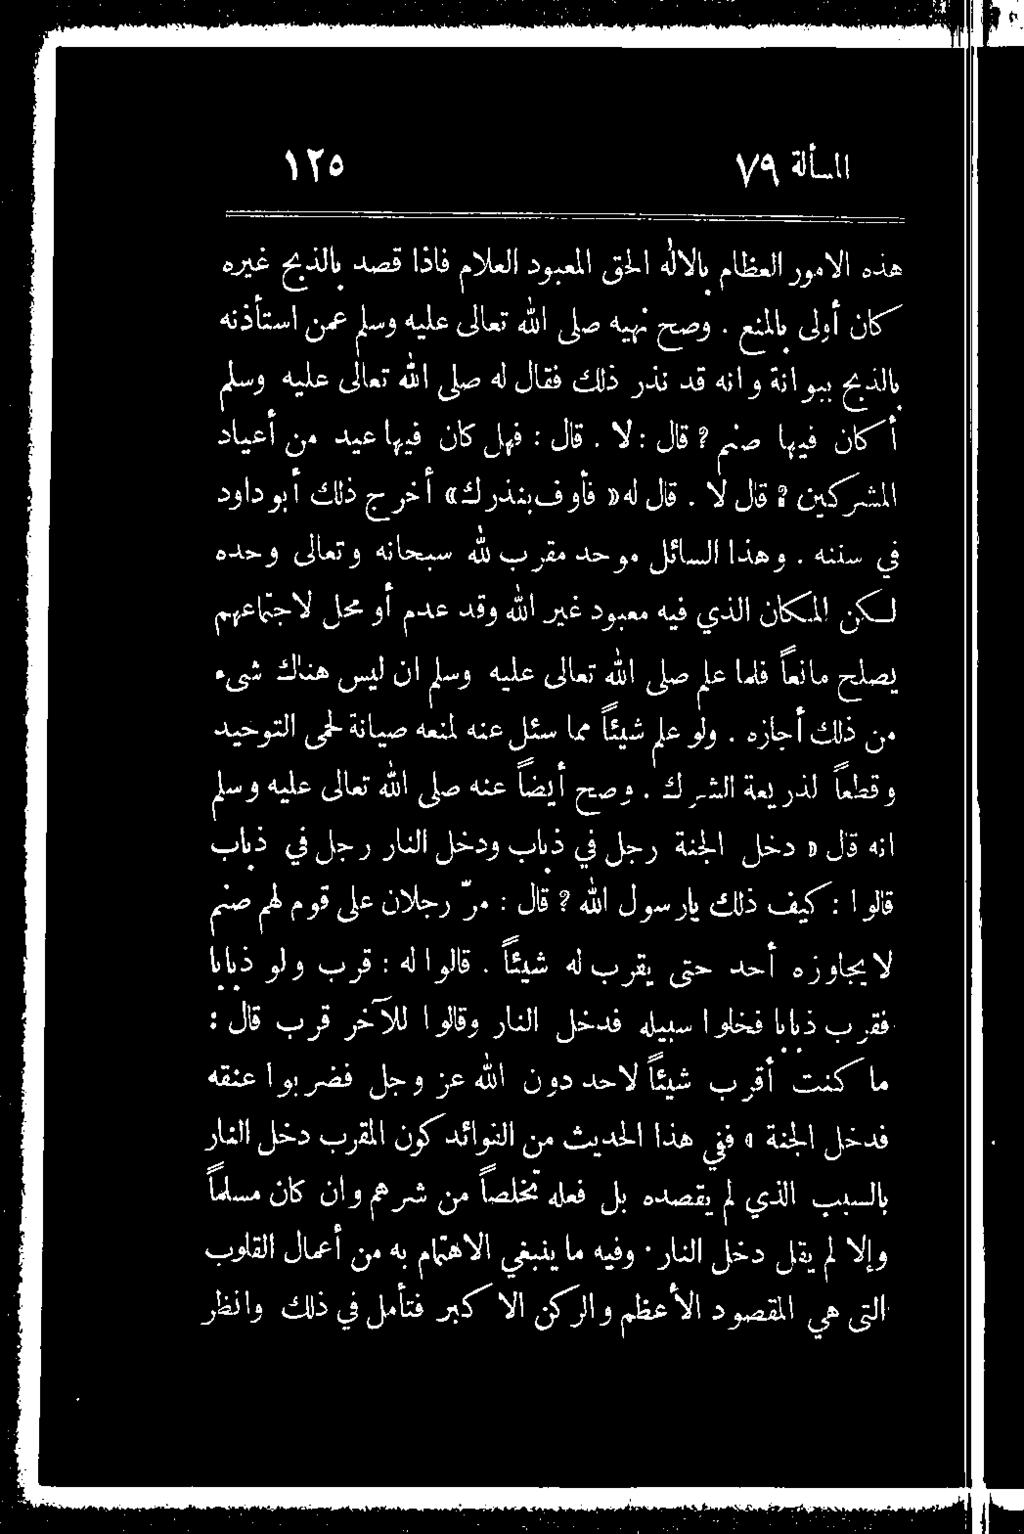 المسألة ٧٩ ١٢٥
هذه الامور العظام بالاله الحق المعبود العلام فاذا قصد بالذبح غيره
كان أولى بالمنع . وصح نهيه صلى الله تعالى عليه وسلم عمن استأذنه
بالذبح ببوانة وانه قد نذر ذلك فقال له صلى الله تعالى عليه وسلم
أ كان فيها صنم ? قال : لا . قال : فهل كان فيها عيد من أعياد
المشركين ? قال لا . قال له « فأوف بنذرك » أخرج ذلك أبو داود
في سننه . وهذا السائل موحد مقرب لله سبحانه وتعالى وحده
لـكن المكان الذي فيه معبود غير الله وقد عدم أو محل لاجتماعهم
يصلح مانعاً فلما علم صلى الله تعالى عليه وسلم ان ليس هناك شىء
من ذلك أجازه . ولو علم شيئاً مما سئل عنه لمنعه صيانة لحمى التوحيد
وقطعاً لذريعة الشرك . وصح أيضاً عنه صلى الله تعالى عليه وسلم
انه قال « دخل الجنة رجل في ذباب ودخل النار رجل في ذباب
قالوا : كيف ذلك يارسول الله ? قال : مرّ رجلان على قوم لهم صنم
لا يجاوزه أحد حتى يقرب له شيئاً . قالوا له : قرب ولو ذبابا
فقرب ذبابا فخلوا سبيله فدخل النار وقالوا للآخر قرب قال :
ما كنت أقرب شيئاً لاحد دون الله عز وجل فضربوا عنقه
فدخل الجنة » ففي هذا الحديث من الفوائد كون المقرب دخل النار
بالسبب الذي لم يقصده بل فعله تخلصاً من شرهم وان كان مسلماً
وإلا لم يقل دخل النار . وفيه ما ينبغي الاهتمام به من أعمال القلوب
التى هي المقصود الأعظم والركن الا كبر فتأمل في ذلك وانظر